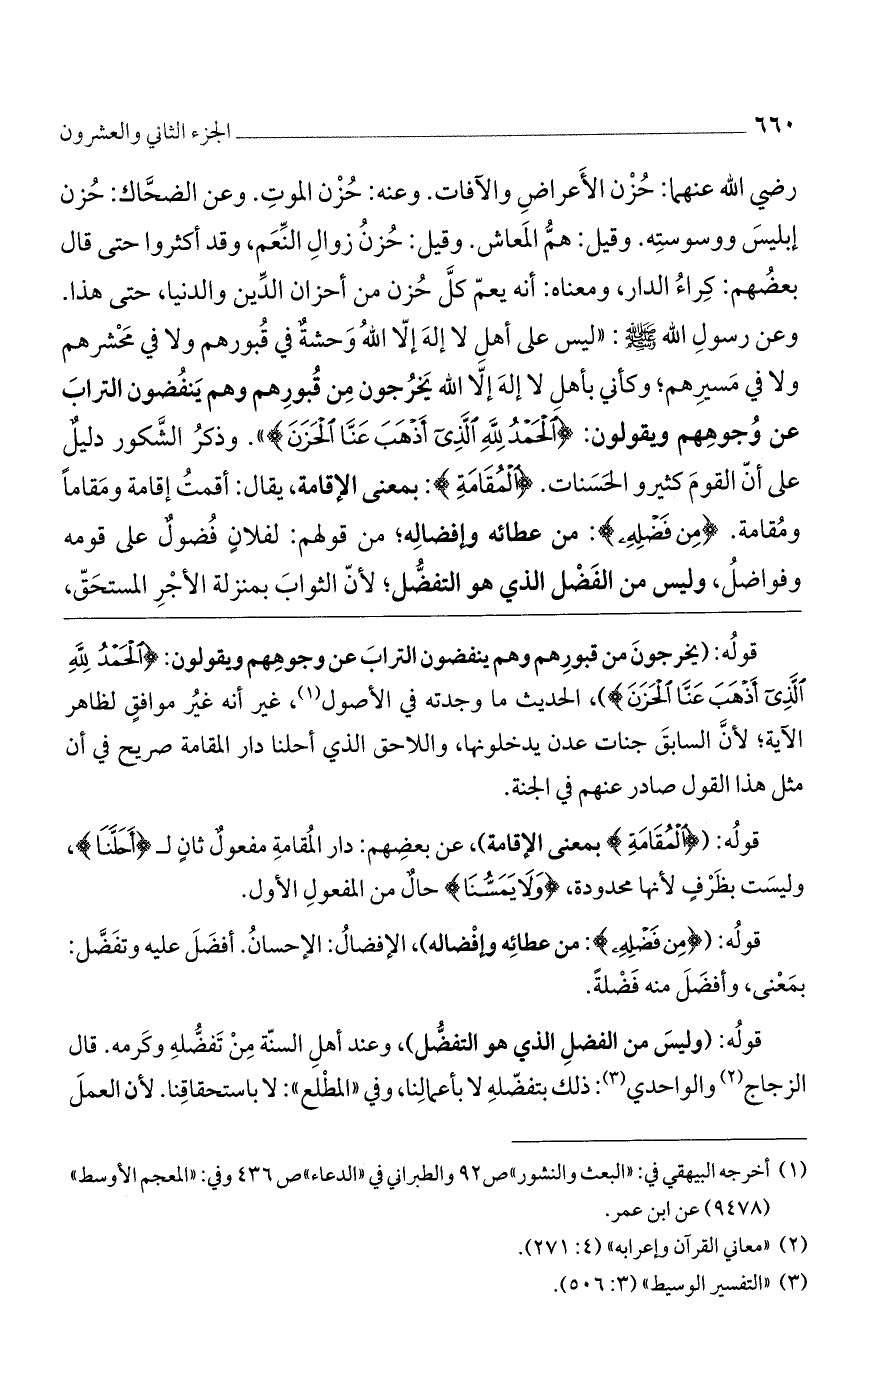 ٦٦٠ الجزء الثاني والعشرون
رضي الله عنهما: حُزْن الأَعراضِ والآفات. وعنه: حُزْن الموتِ. وعن الضحَّاك: حُزن
إبليسَ ووسوستِه. وقيل: همُّ المَعاش. وقيل: حُزنُ زوالِ النِّعَم، وقد أكثروا حتى قال
بعضُهم: كِراءُ الدار، ومعناه: أنه يعمّ كلَّ حُزن من أحزان الدِّين والدنيا، حتى هذا.
وعن رسولِ الله ﷺ: «ليس على أهلِ لا إلهَ إلّا اللهُ وَحشةٌ في قُبورهم ولا في مَحْشرهم
ولا في مَسيرِهم؛ وكأني بأهلِ لا إلهَ إلّا الله يَخرُجون مِن قُبورِهم وهم يَنفُضون الترابَ
عن وُجوهِهم ويقولون: ﴿ٱلۡحَمۡدُ لِلَّهِ ٱلَّذِىٓ أَذۡهَبَ عَنَّا ٱلۡحَزَنَ﴾». وذكرُ الشَّكور دليلٌ
على أنّ القومَ كثيرو الحَسَنات. ﴿ٱلۡمُقَامَةِ﴾: بمعنى الإقامة، يقال: أقمتُ إقامة ومَقاماً
ومُقامة. ﴿مِن فَضۡلِهِۦ﴾: من عطائه وإفضالِه؛ من قولهم: لفلانٍ فُضولٌ على قومه
وفواضلُ، وليس من الفَضْل الذي هو التفضُّل؛ لأنّ الثوابَ بمنزلة الأجْرِ المستحَقّ،
قولُه: (يخرجونَ من قبورِهم وهم ينفضون الترابَ عن وجوهِهم ويقولون: ﴿ٱلۡحَمۡدُ لِلَّهِ
ٱلَّذِىٓ أَذۡهَبَ عَنَّا ٱلۡحَزَنَ﴾)، الحديث ما وجدته في الأصول(١)، غير أنه غيرُ موافقٍ لظاهر
الآية؛ لأنَّ السابقَ جنات عدن يدخلونها، واللاحق الذي أحلنا دار المقامة صريح في أن
مثل هذا القول صادر عنهم في الجنة.
قولُه: (﴿ٱلۡمُقَامَةِ﴾ بمعنى الإقامة)، عن بعضِهم: دار المُقامةِ مفعولٌ ثانٍ لـ ﴿أَحَلَّنَا﴾،
وليسَت بظَرْفٍ لأنها محدودة، ﴿وَلَا يَمَسُّنَا﴾ حالٌ من المفعولِ الأول.
قولُه: (﴿مِن فَضۡلِهِۦ﴾: من عطائِه وإفْضاله)، الإفضالُ: الإحسانُ. أفضَلَ عليه وتفَضَّل:
بمَعْنى، وأفضَلَ منه فَضْلةً.
قولُه: (وليسَ من الفضلِ الذي هو التفضُّل)، وعند أهلِ السنّة مِنْ تَفضُّلهِ وكَرمه. قال
الزجاج(٢) والواحدي(٣): ذلك بتفضّلهِ لا بأعمالِنا، وفي «المطْلع»: لا باستحقاقِنا. لأن العملَ
(١) أخرجه البيهقي في: «البعث والنشور» ص٩٢ والطبراني في «الدعاء» ص٤٣٦ وفي: «المعجم الأوسط»
(٩٤٧٨) عن ابن عمر.
(٢) «معاني القرآن وإعرابه» (٤: ٢٧١).
(٣) «التفسير الوسيط» (٣: ٥٠٦).